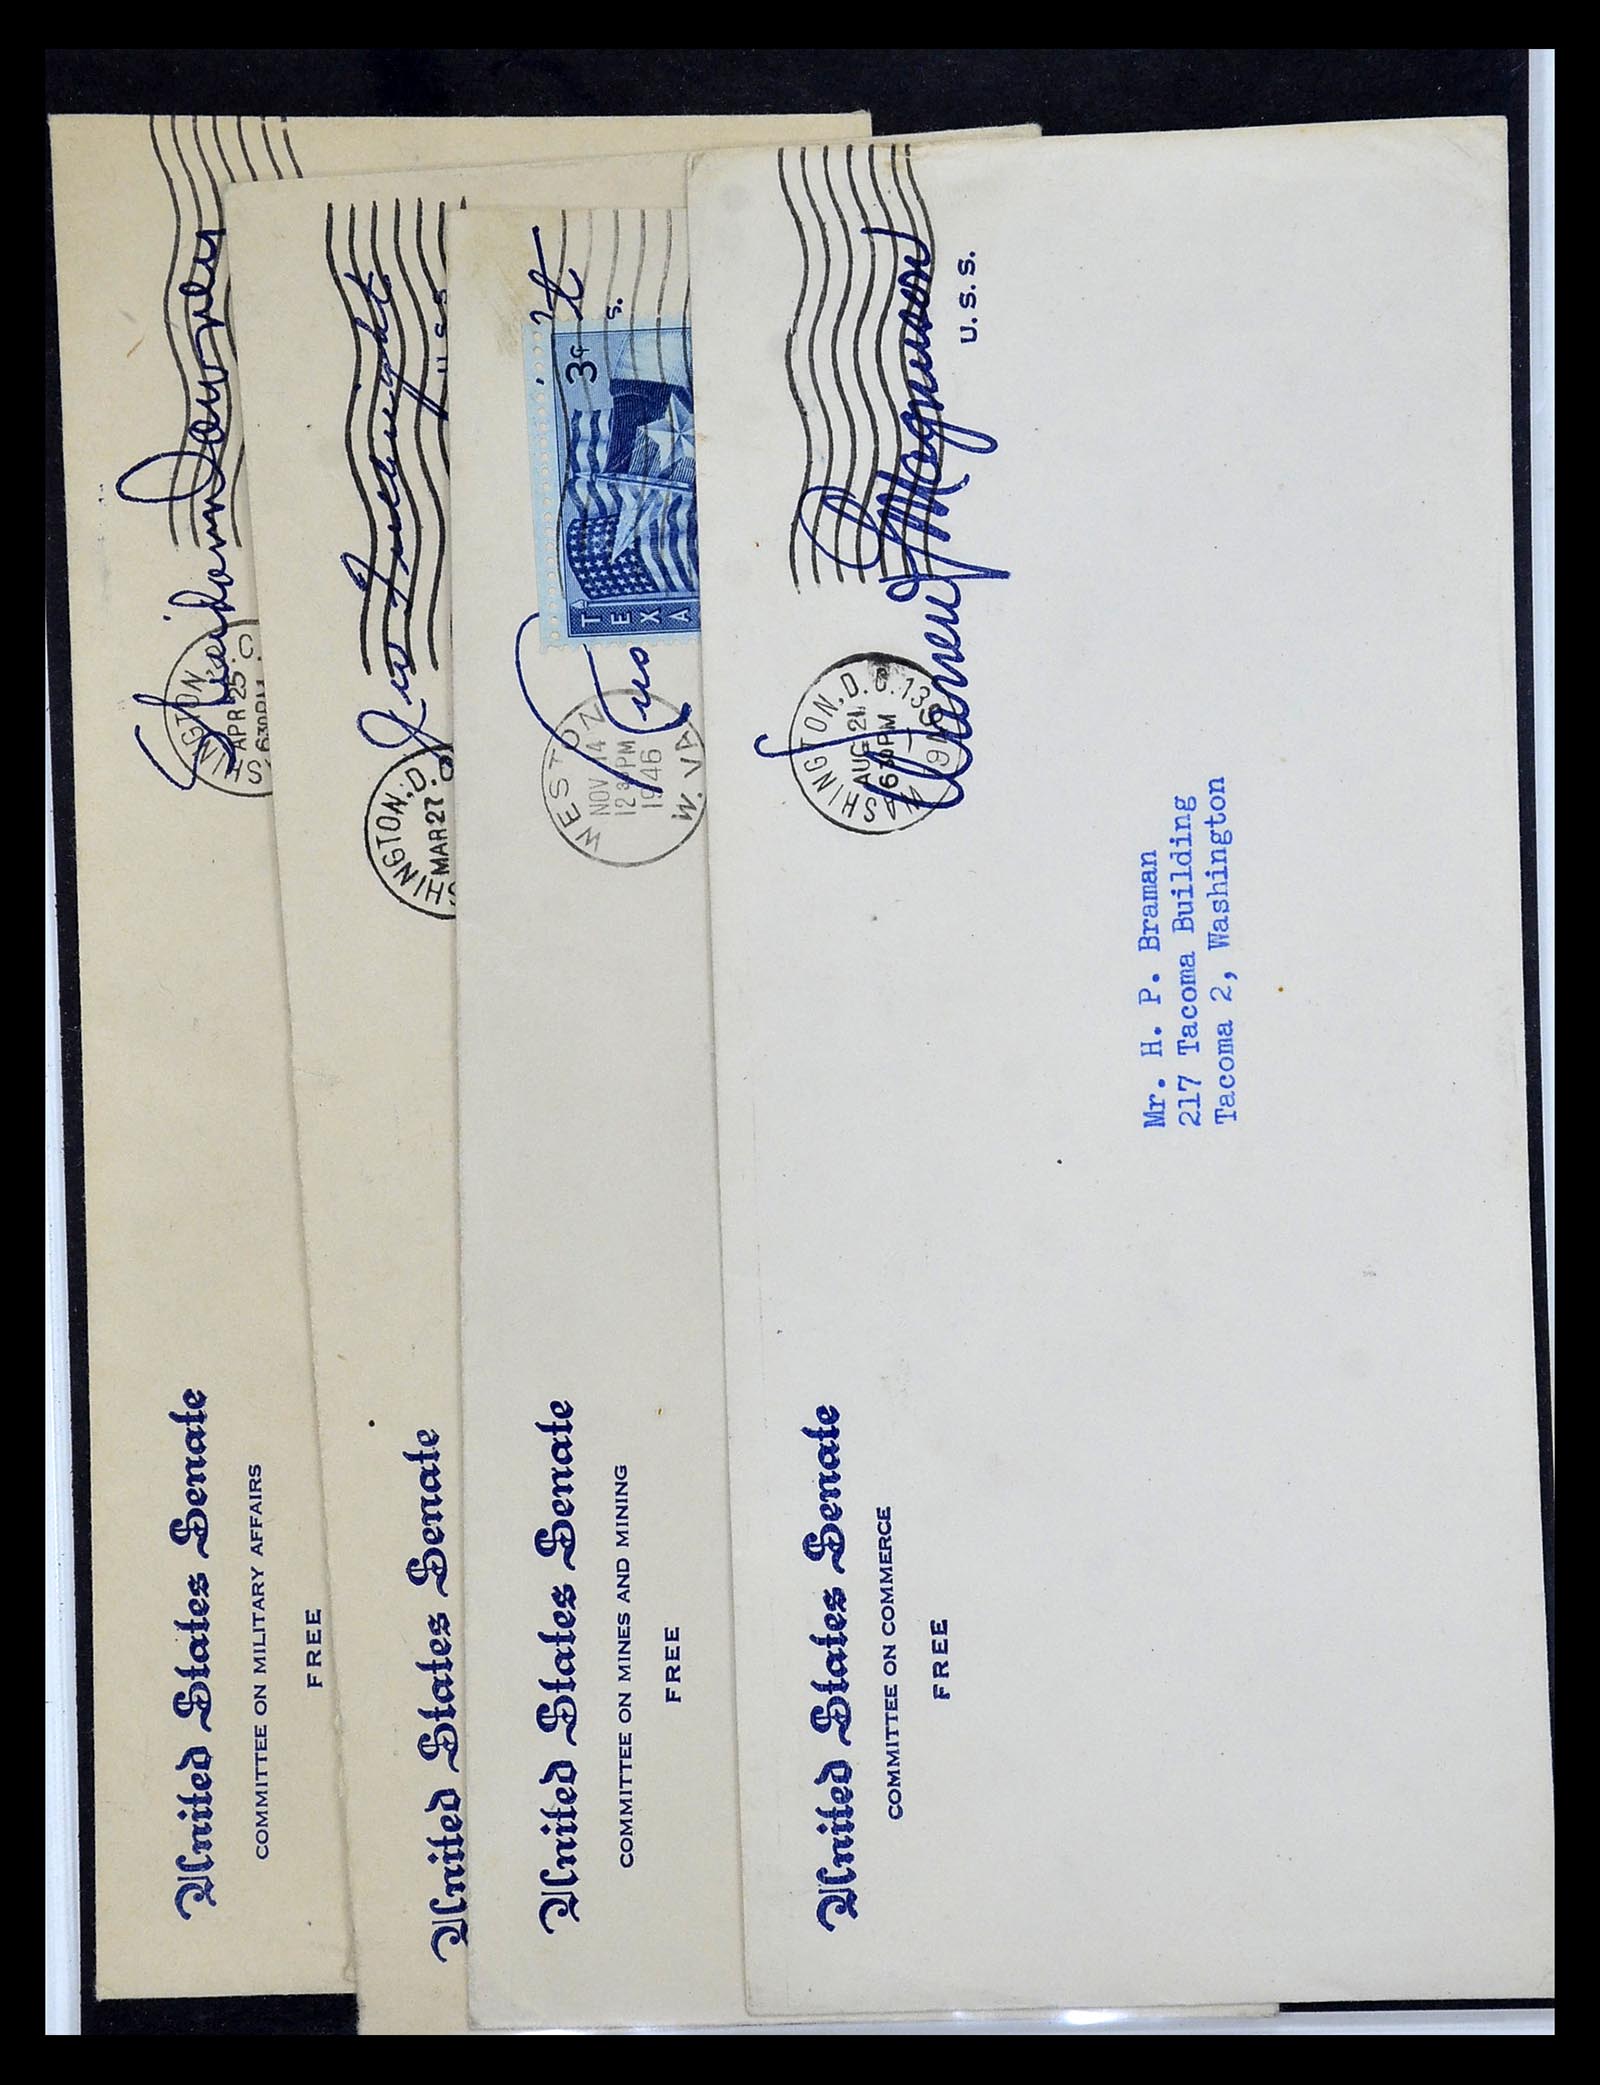 United States Senate
COMMITTEE ON MILITARY AFFAIRS
FREE
Sheridan Downey
INGTON
APR 25
6 30 PM
United States Senate
HINGTON, D.
MAR 27
U.S.S.
United States Senate
COMMITTEE ON MINES AND MINING
FREE
WESTON
NOV 14
12 PM
1946
W. VA
3¢
TEXA
S.
United States Senate
COMMITTEE ON COMMERCE
FREE
WASHINGTON, D. C. 13
AUG 21
6 30 PM
Warren G Magnuson
U. S. S.
Mr. H. P. Braman
217 Tacoma Building
Tacoma 2, Washington